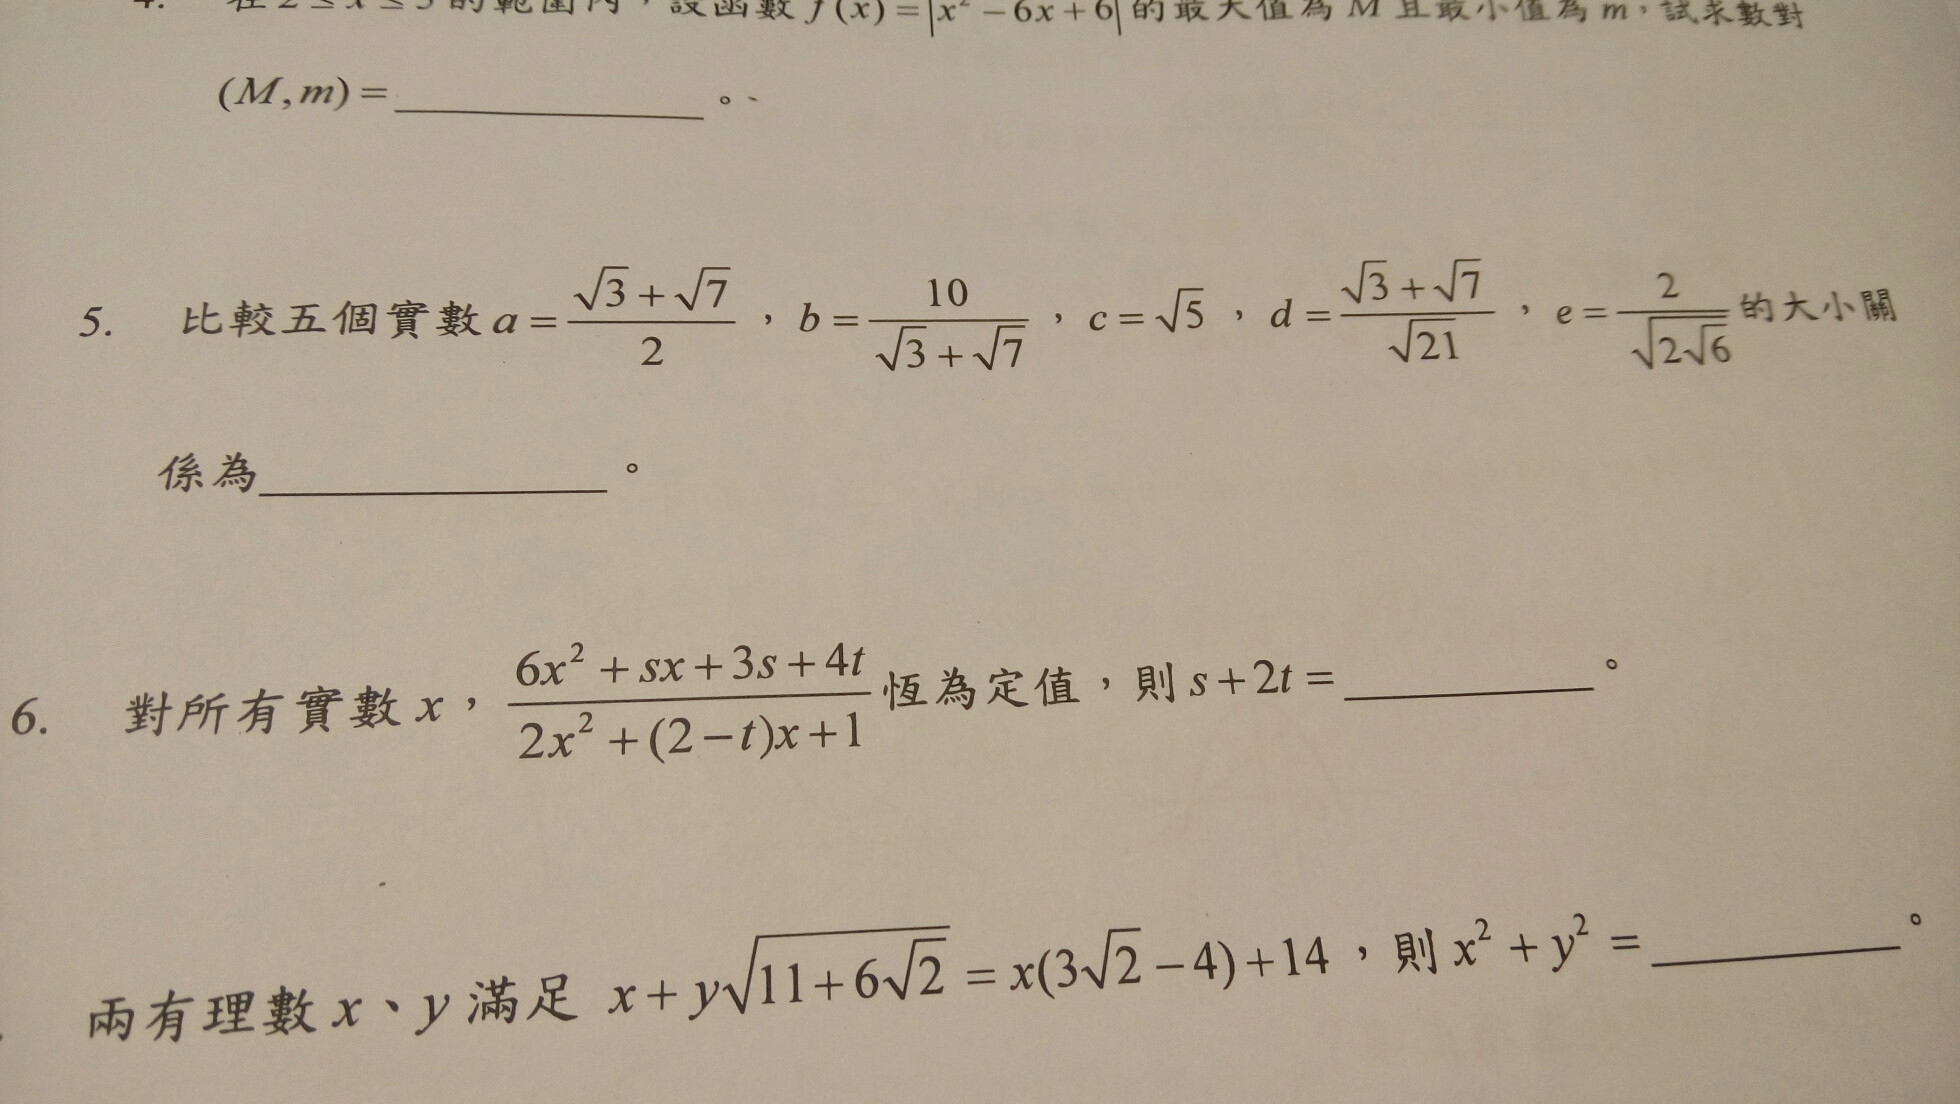 4. 在 2 ≤ x ≤ 5 的範圍內,設函數 f(x) = |x² − 6x + 6| 的最大值為 M 且最小值為 m,試求數對
(M, m) = ____________ 。
5. 比較五個實數 a = (√3 + √7)/2 , b = 10/(√3 + √7) , c = √5 , d = (√3 + √7)/√21 , e = 2/√(2√6) 的大小關
係為____________ 。
6. 對所有實數 x , (6x² + sx + 3s + 4t)/(2x² + (2 − t)x + 1) 恆為定值,則 s + 2t = ____________ 。
兩有理數 x、y 滿足 x + y√(11 + 6√2) = x(3√2 − 4) + 14 ,則 x² + y² = ____________ 。